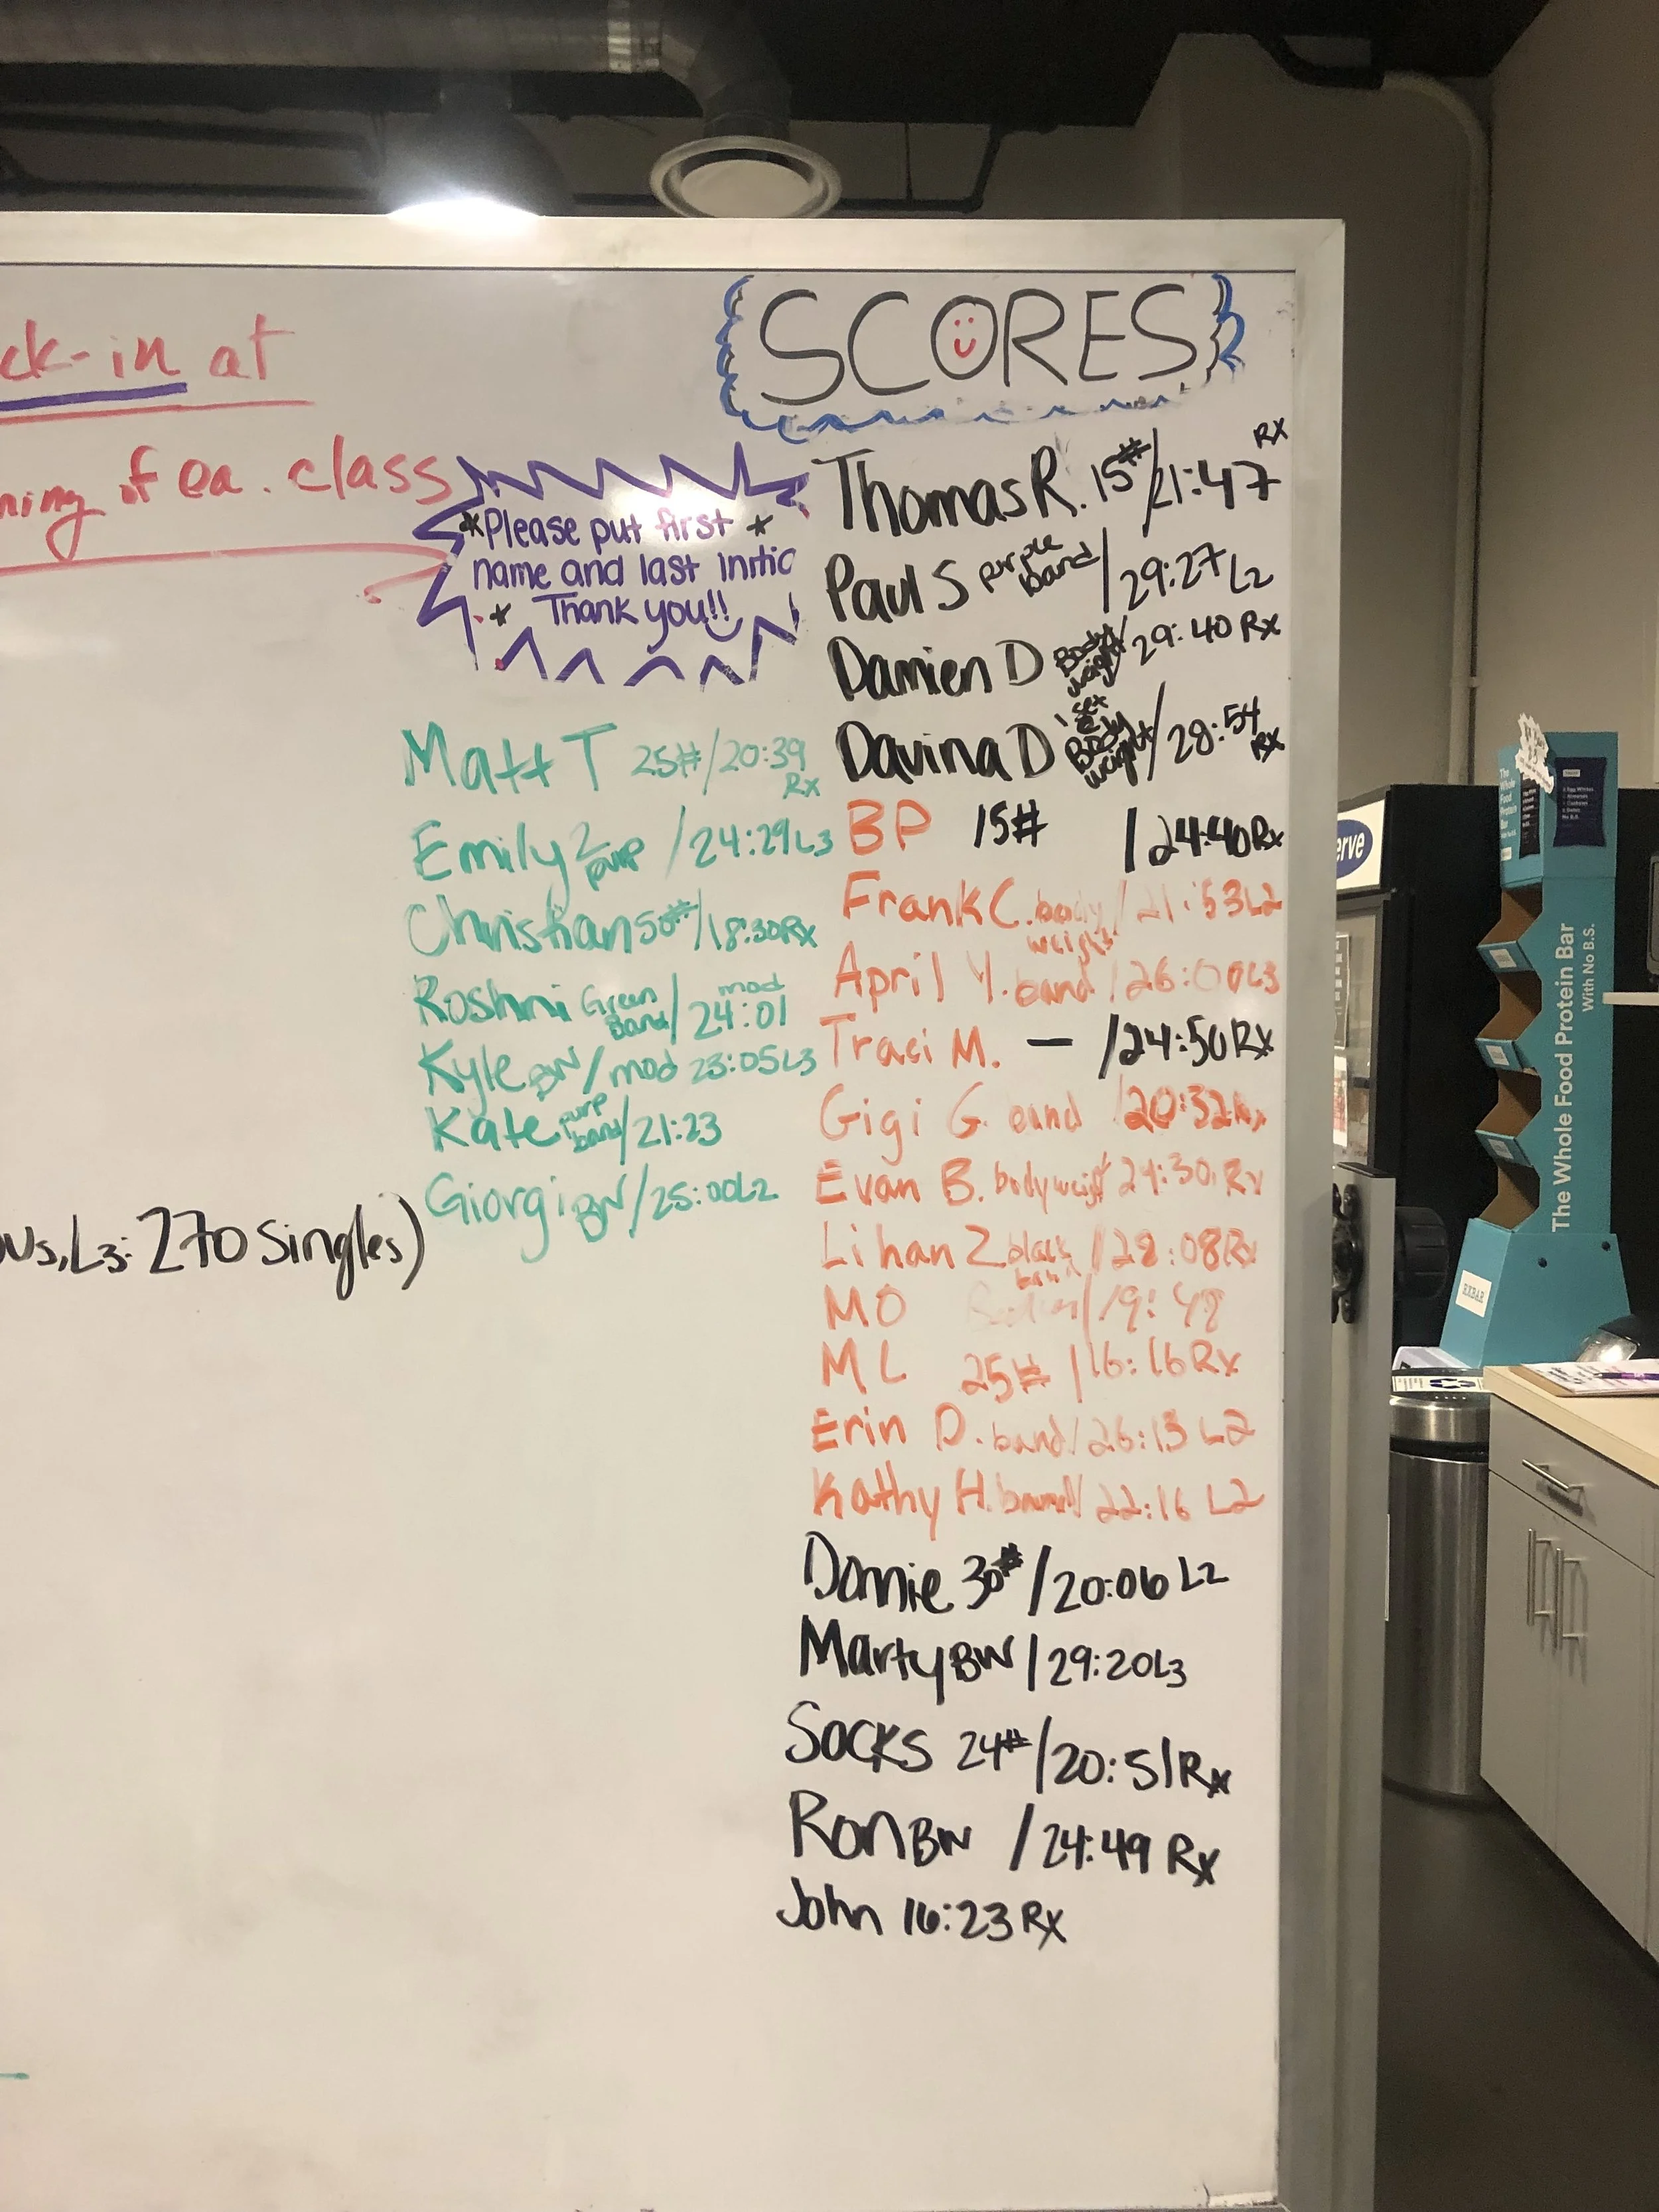 ck-in at
ning of ea. class
SCORES
*Please put first *
name and last initic
* Thank you!!
Thomas R. 15#/21:47 RX
Paul S purple band/29:27 L2
Damien D Body weight/29:40 Rx
Davina D 1 set @ Body weight/28:54 Rx
BP 15# /24:40 Rx
Frank C. body weight/21:53 L2
April Y. band/26:00 L3
Traci M. — /24:50 Rx
Gigi G. band /20:32 Rx
Evan B. bodyweight 24:30 Rx
Lihan Z black band/28:08 Rx
MO /19:48
ML 25# /16:16 Rx
Erin D. band/26:13 L2
Kathy H. band/22:16 L2
Donnie 30#/20:06 L2
Marty BW/29:20 L3
Socks 24#/20:51 Rx
Ron BW /24:49 Rx
John 16:23 Rx
Matt T 25#/20:39 Rx
Emily Z purp /24:29 L3
Christian 50#/18:30 Rx
Roshni Green Band/24:01 mod
Kyle BW/mod 23:05 L3
Kate purp band/21:23
Giorgi BW/25:00 L2
us, L3: 270 Singles)
erve
The Whole Food Protein Bar
With No B.S.
The
Whole
Food
Protein
Bar
3 Egg Whites
RXBAR